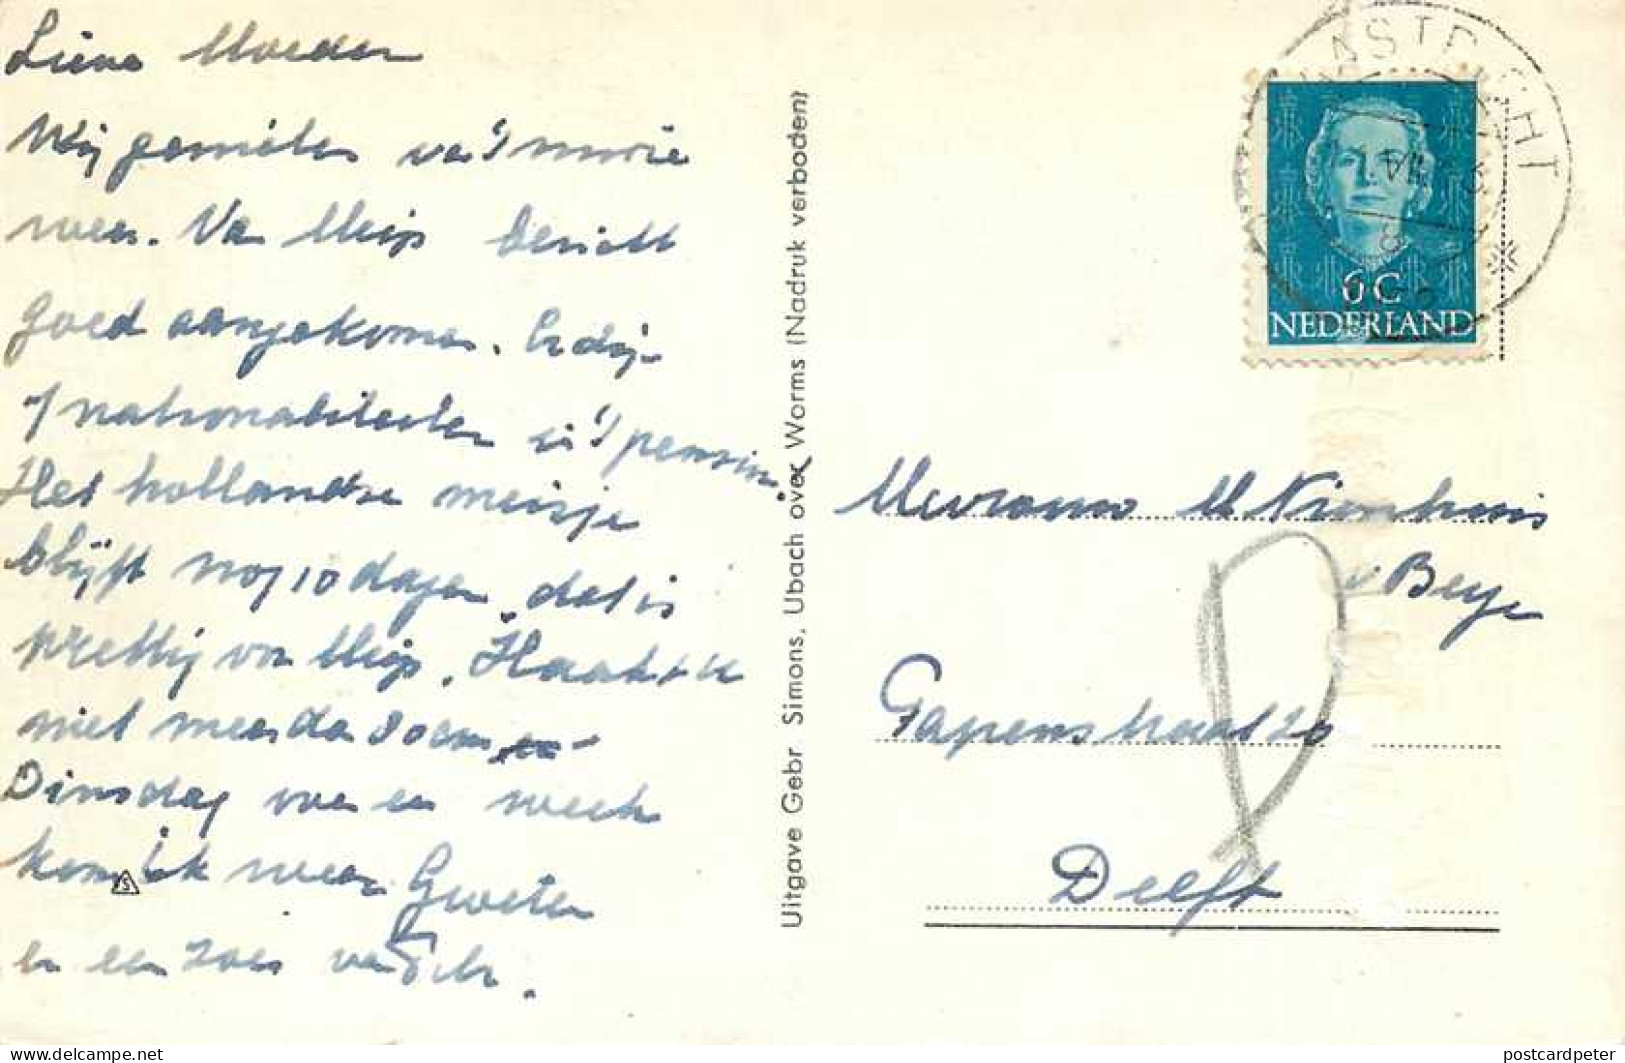 Lieve Moeder
Wij genieten va 't mooie
weer. Van Miep bericht
goed aangekomen. Er zijn
7 nationaliteiten in 't pension.
Het hollandse meisje
blijft nog 10 dagen, dat is
prettig voor Miep.
niet meer da
Dinsdag over een week
kom ik weer Groeten
en een zoen van
Uitgave Gebr. Simons, Ubach over Worms (Nadruk verboden)
MAASTRICHT
6 C
NEDERLAND
Mevrouw M Nienhuis
v Beye
Papenstraat 20
Delft
postcardpeter